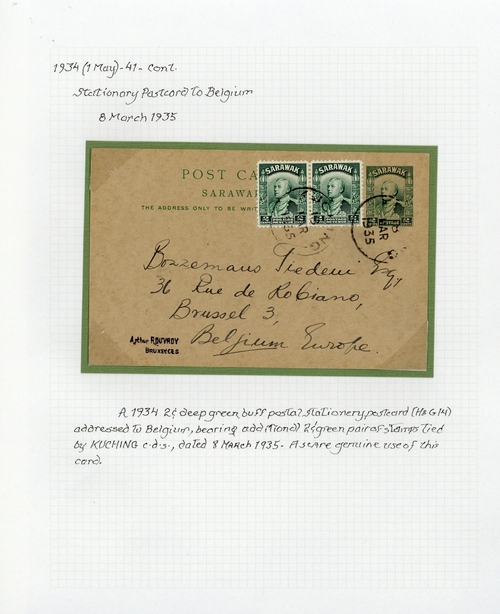 1934 (1 May)-41- cont.
Stationary Postcard to Belgium
8 March 1935
POST CA
SARAWA
THE ADDRESS ONLY TO BE WRIT
SARAWAK
SARAWAK
SARAWAK
KUCHING
MAR
1935
MAR
1935
Bozzemans Frederic Esqr
36 Rue de Robiano,
Brussel 3,
Belgium Europe.
Arthur ROUVROY
BRUXELLES
A 1934 2¢ deep green, buff postal stationery postcard (H&G 14)
addressed to Belgium, bearing additional 2¢ green pair of stamps tied
by KUCHING c.d.s., dated 8 MARCH 1935- A scarce genuine use of this
card.